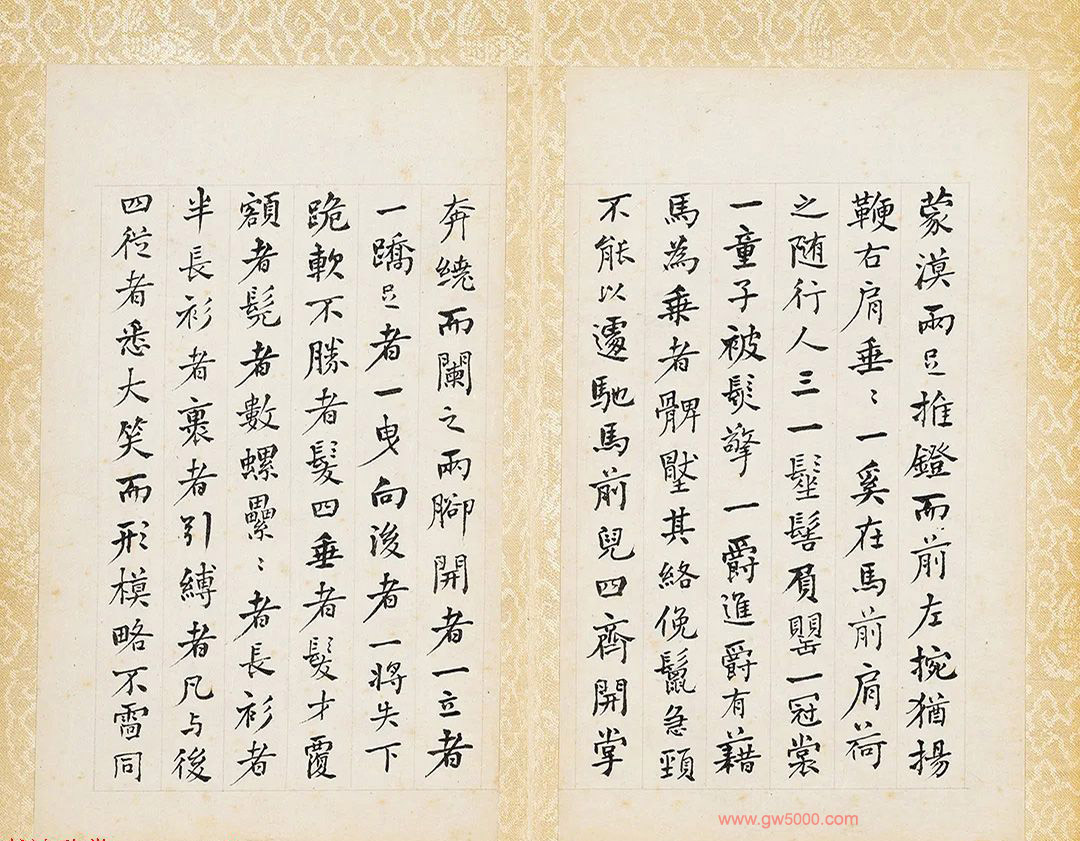 蒙漠兩足推鐙而前左捥猶揚
鞭右肩垂〻一奚在馬前肩荷
之隨行人三一髽髻負罌一冠裳
一童子被髮擎一爵進爵有藉
馬為乗者髀壓其絡俛鬣急頸
不能以遽馳馬前兒四齊開掌
奔繞而闌之兩腳開者一立者
一蹻足者一曳向後者一將失下
跪軟不勝者髮四垂者髮才覆
額者髡者數螺纍〻者長衫者
半長衫者裹者引縛者凡与後
四從者悉大笑而形模略不雷同
www.gw5000.com